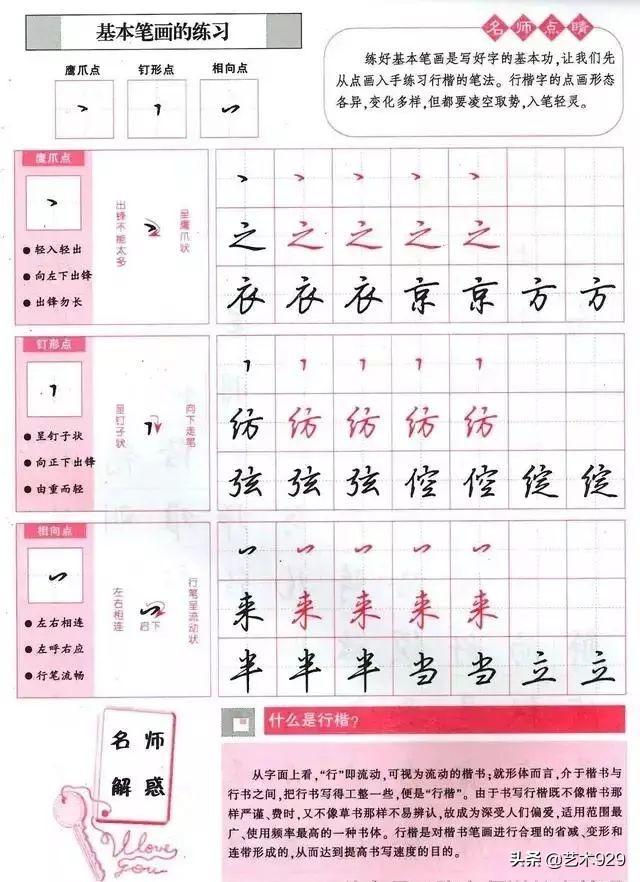 基本笔画的练习
鹰爪点 钉形点 相向点
名师点睛
练好基本笔画是写好字的基本功，让我们先
从点画入手练习行楷的笔法。行楷字的点画形态
各异，变化多样，但都要凌空取势，入笔轻灵。
鹰爪点
●轻入轻出
●向左下出锋
●出锋勿长
出锋不能太多
呈鹰爪状
之 之 之 之 之
衣 衣 衣 京 京 方 方
钉形点
●呈钉子状
●向正下出锋
●由重而轻
呈钉子状
向下走笔
纺 纺 纺 纺 纺
弦 弦 弦 倥 倥 绽 绽
相向点
●左右相连
●左呼右应
●行笔流畅
左右相连
启下
行笔呈流动状
来 来 来 来 来
半 半 半 当 当 立 立
名师
解惑
I love
you
什么是行楷?
从字面上看，“行”即流动，可视为流动的楷书；就形体而言，介于楷书与
行书之间，把行书写得工整一些，便是“行楷”。由于书写行楷既不像楷书那
样严谨、费时，又不像草书那样不易辨认，故成为深受人们偏爱，适用范围最
广、使用频率最高的一种书体。行楷是对楷书笔画进行合理的省减、变形和
连带形成的，从而达到提高书写速度的目的。
头条 @艺术929